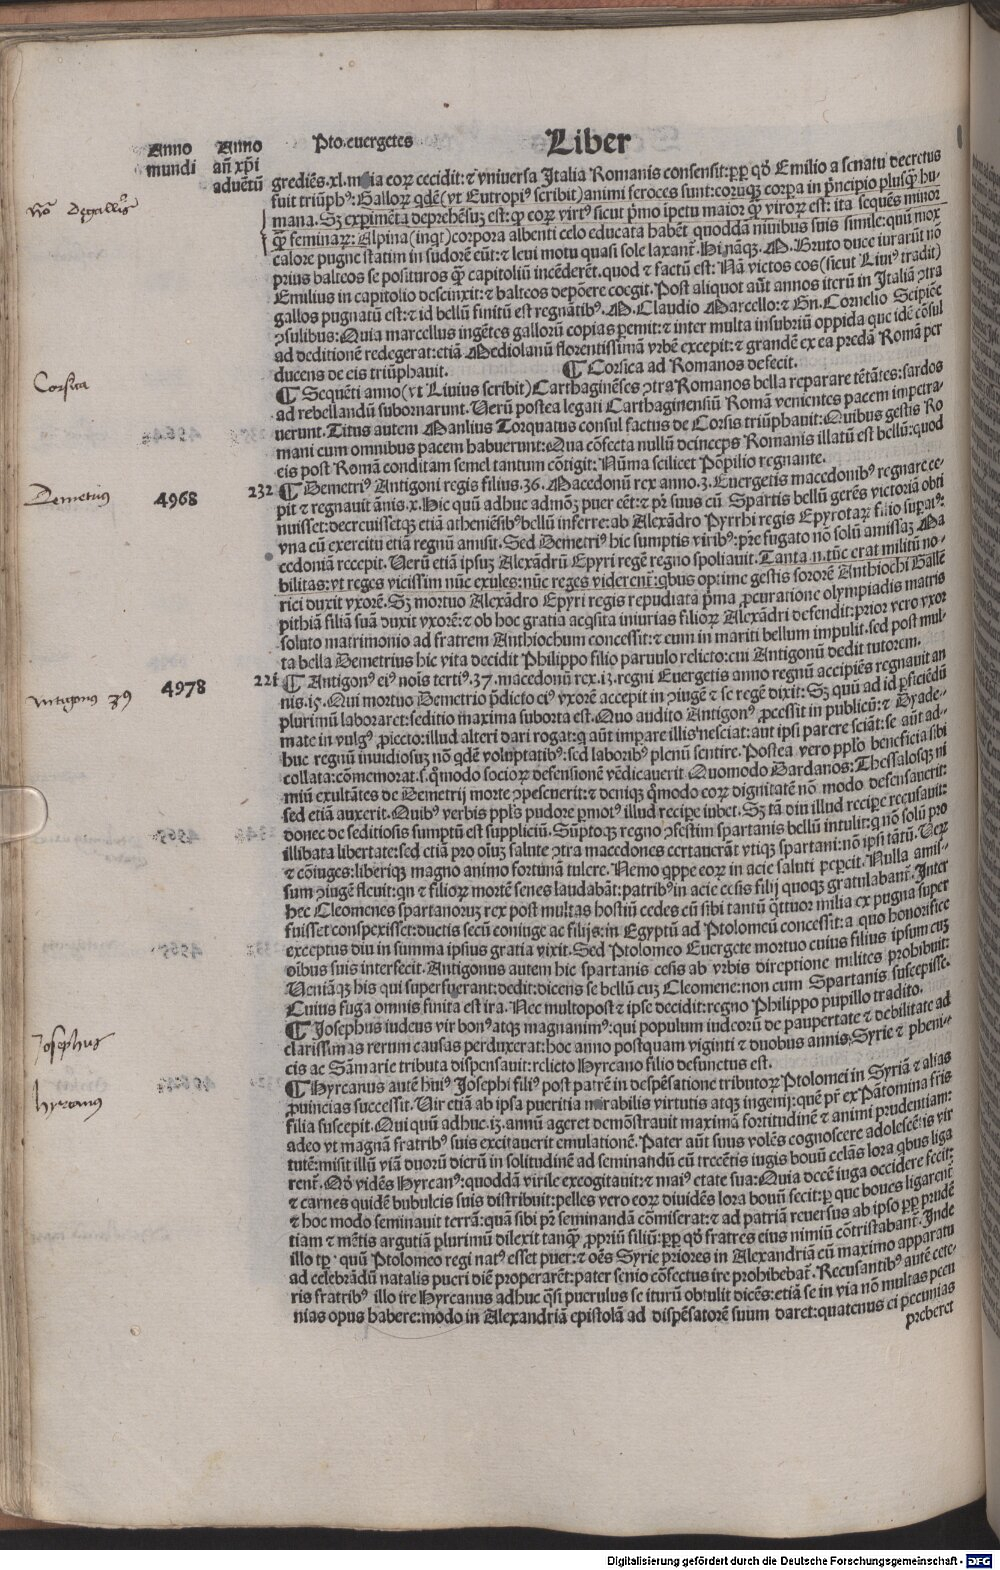 Anno mundi
Anno añ xp̄i aduētū
Pto. euergetes
Liber
grediēs .xl. m ia eoꝝ cecidit: ⁊ vniuersa Italia Romanis consensit: ꝑp̱ qđ Emilio a senatu decretus
fuit triūphꝰ: Galloꝝ qdē (vt Eutropiꝰ scribit) animi feroces sunt: eoruqꝫ corꝑa in p̄ncipio plusq̄ȝ hu-
mana. Sꝫ exꝑimēta deprehēsuȝ est: ꝙ eoꝝ virtꝰ sicut p̄mo īpetu maior q̄ȝ viroꝝ est: ita sequēs minor
q̄ȝ feminaꝝ: Alpina (inqt) corpora albenti celo educata habēt quoddā niuibus suis simile: quū mox
calore pugne statim in sudorē eūt: ⁊ leui motu quasi sole laxant̄. Hi nāqꝫ. M. Bruto duce iurarūt nō
prius balteos se posituros q̄ȝ capitoliū incēderēt. quod ⁊ factū est: Nā victos eos (sicut Liuiꝰ tradit)
Emilius in capitolio descinxit: ⁊ balteos depōere coegit. Post aliquot aūt annos iterū in Italiā ꝯtra
gallos pugnatū est: ⁊ id bellū finitū est regnātibꝰ. M. Claudio Marcello: ⁊ Gn. Cornelio Scipiōe
ꝯsulibus: Quia marcellus ingētes galloꝝ copias ꝑemit: ⁊ inter multa insubriū oppida que idē cōsul
ad deditionē redegerat: etiā Mediolanū florentissimā vrbē excepit: ⁊ grandē ex ea predā Romā per
ducens de eis triūphauit. ¶ Corsica ad Romanos defecit.
¶ Sequēti anno (vt Liuius scribit) Carthaginēses ꝯtra Romanos bella reparare tētātes: sardos
ad rebellandū subornarunt. Uerū postea legati Carthaginensiū Romā venientes pacem impetra-
uerunt. Titus autem Manlius Torquatus consul factus de Corsis triūphauit: Quibus gestis Ro
mani cum omnibus pacem habuerunt: Qua cōfecta nullū deinceps Romanis illatū est bellū: quod
eis post Romā conditam semel tantum cōtigit: Nūma scilicet Pōpilio regnante.
4968 232 ¶ Demetriꝰ Antigoni regis filius. 36. Macedonū rex anno. 3. Euergetis macedonibꝰ regnare ce-
pit ⁊ regnauit ānis. x. Hic quū adhuc admōꝫ puer eēt: ⁊ pr̄ suus cū Spartis bellū gerēs victoriā obti
nuisset: decreuissetqꝫ etiā atheniēsibꝰ bellū inferre: ab Alexādro Pyrrhi regis Epyrotaꝝ filio suꝑatꝰ:
vna cū exercitu etiā regnū amisit. Sed Demetriꝰ hic sumptis viribꝰ: pr̄e fugato nō solū amissaȝ Ma
cedoniā recepit. Uerū etiā ipsuȝ Alexādrū Epyri regē regno spoliauit. Tanta .n. tūc erat militū no-
bilitas: vt reges vicissim nūc exules: nūc reges viderent̄: qbus optime gestis sororē Anthiochi Galle
rici duxit vxorē. Sꝫ mortuo Alexādro Epyri regis repudiata p̄ma ꝓcuratione olympiadis matris
pithiā filiā suā duxit vxorē: ⁊ ob hoc gratia acqsita iniurias filioꝝ Alexādri defendit: prior vero vxor
soluto matrimonio ad fratrem Anthiochum concessit: ⁊ eum in mariti bellum impulit. sed post mul-
ta bella Demetrius hic vita decidit Philippo filio paruulo relicto: cui Antigonū dedit tutorem.
4978 221 ¶ Antigonꝰ eiꝰ nois tertiꝰ. 37. macedonū rex. 13. regni Euergetis anno regnū accipiēs regnauit an
nis. 15. Qui mortuo Demetrio p̄dicto eiꝰ vxorē accepit in ꝯiugē ⁊ se regē dixit: Sꝫ quū ad id ꝑficiēdū
plurimū laboraret: seditio maxima suborta est. Quo audito Antigonꝰ ꝓcessit in publicū: ⁊ Dyade-
mate in vulgꝰ ꝓiecto: illud alteri dari rogat: q aūt impare illis nesciat: aut ipsi parere sciāt: se aūt ad-
huc regnū inuidiosuȝ nō qdē voluptatibꝰ: sed laboribꝰ plenū sentire. Postea vero pplo beneficia sibi
collata: cōmemorat. s. q̄modo socioꝝ defensionē vēdicauerit Quomodo Dardanos: Thessalosqꝫ ni
miū exultātes de Demetrij morte ꝯpescuerit: ⁊ deniqꝫ q̄modo eoꝝ dignitatē nō modo defensauerit:
sed etiā auxerit. Quibꝰ verbis ppl̄s pudore ꝑmotꝰ illud recipe iubet. Sꝫ tā diu illud recipe recusauit:
donec de seditiosis sumptū est suppliciū. Sūptoqꝫ regno ꝯfestim spartanis bellū intulit: q nō solū pro
illibata libertate: sed etiā pro oiuȝ salute ꝯtra macedones certauerāt vtiqꝫ spartani: nō ipsi tātū. Ueꝝ
⁊ cōiuges: liberiqꝫ magno animo fortunā tulere. Nemo qppe eoꝝ in acie saluti peꝑcit. Nulla amis-
sum ꝯiugē fleuit: qn ⁊ filioꝝ mortē senes laudabāt: patribꝰ in acie cesis filij quoqꝫ gratulabant̄. Inter
hec Cleomenes spartanoruȝ rex post multas hostiū cedes cū sibi tantū q̄ttuor milia ex pugna super
fuisset conspexisset: ductis secū coniuge ac filijs: in Egyptū ad Ptolomeū concessit: a quo honorifice
exceptus diu in summa ipsius gratia vixit. Sed Ptolomeo Euergete mortuo cuius filius ipsum cuȝ
oibus suis interfecit. Antigonus autem hic spartanis cesis ab vrbis direptione milites prohibuit:
Ueniāqꝫ his qui superfuerant: dedit: dicens se bellū cuȝ Cleomene: non cum Spartanis suscepisse.
Cuius fuga omnis finita est ira. Nec multopost ⁊ ipse decidit: regno Philippo pupillo tradito.
¶ Josephus iudeus vir bonꝰ atqꝫ magnanimꝰ: qui populum iudeorū de paupertate ⁊ debilitate ad
clarissimas rerum causas perduxerat: hoc anno postquam viginti ⁊ duobus annis: Syrie ⁊ pheni-
cis ac Sāmarie tributa dispensauit: relicto Hyrcano filio defunctus est.
¶ Hyrcanus autē huiꝰ Josephi filiꝰ post patrē in despēsatione tributoꝝ Ptolomei in Syriā ⁊ alias
ꝓuincias successit. Uir etiā ab ipsa pueritia mirabilis virtutis atqꝫ ingenij: quē pr̄ ex Pātomina fr̄is
filia suscepit. Qui quū adhuc. 13. annū ageret demōstrauit maximā fortitudinē ⁊ animi prudentiam:
adeo vt magnā fratribꝰ suis excitauerit emulationē. Pater aūt suus volēs cognoscere adolescētis vir
tutē: misit illū viā duorū dierū in solitudinē ad seminandū cū trecētis iugis bouū celās lora qbus liga
rent̄. Qđ vidēs Hyrcanꝰ: quoddā virile excogitauit: ⁊ maiꝰ etate sua: Quia decē iuga occidere fecit:
⁊ carnes quidē bubulcis suis distribuit: pelles vero eoꝝ diuidēs lora bouū fecit: ꝑ que boues ligarent̄
⁊ hoc modo seminauit terrā: quā sibi pr̄ seminandā cōmiserat: ⁊ ad patriā reuersus ab ipso ꝑp̱ prudē
tiam ⁊ mētis argutiā plurimū dilexit tanqȝ ꝓpriū filiū: ꝑp̱ qđ fratres eius nimiū cōtristabant̄. Inde
illo tp̄r quū Ptolomeo regi natꝰ esset puer: ⁊ oēs Syrie priores in Alexandriā cū maximo apparatu
ad celebrādū natalis pueri diē properarēt: pater senio cōfectus ire prohibebat̄. Recusantibꝰ autē cete-
ris fratribꝰ illo ire Hyrcanus adhuc q̄si puerulus se iturū obtulit dicēs: etiā se in via nō multas pecu
nias opus habere: modo in Alexandriā epistolā ad dispēsatorē suum daret: quatenus ei pecunias
preberet
Corsica
Demetrius
Antigonus 3ꝰ
Josephus
hyrcanus
Digitalisierung gefördert durch die Deutsche Forschungsgemeinschaft - DFG